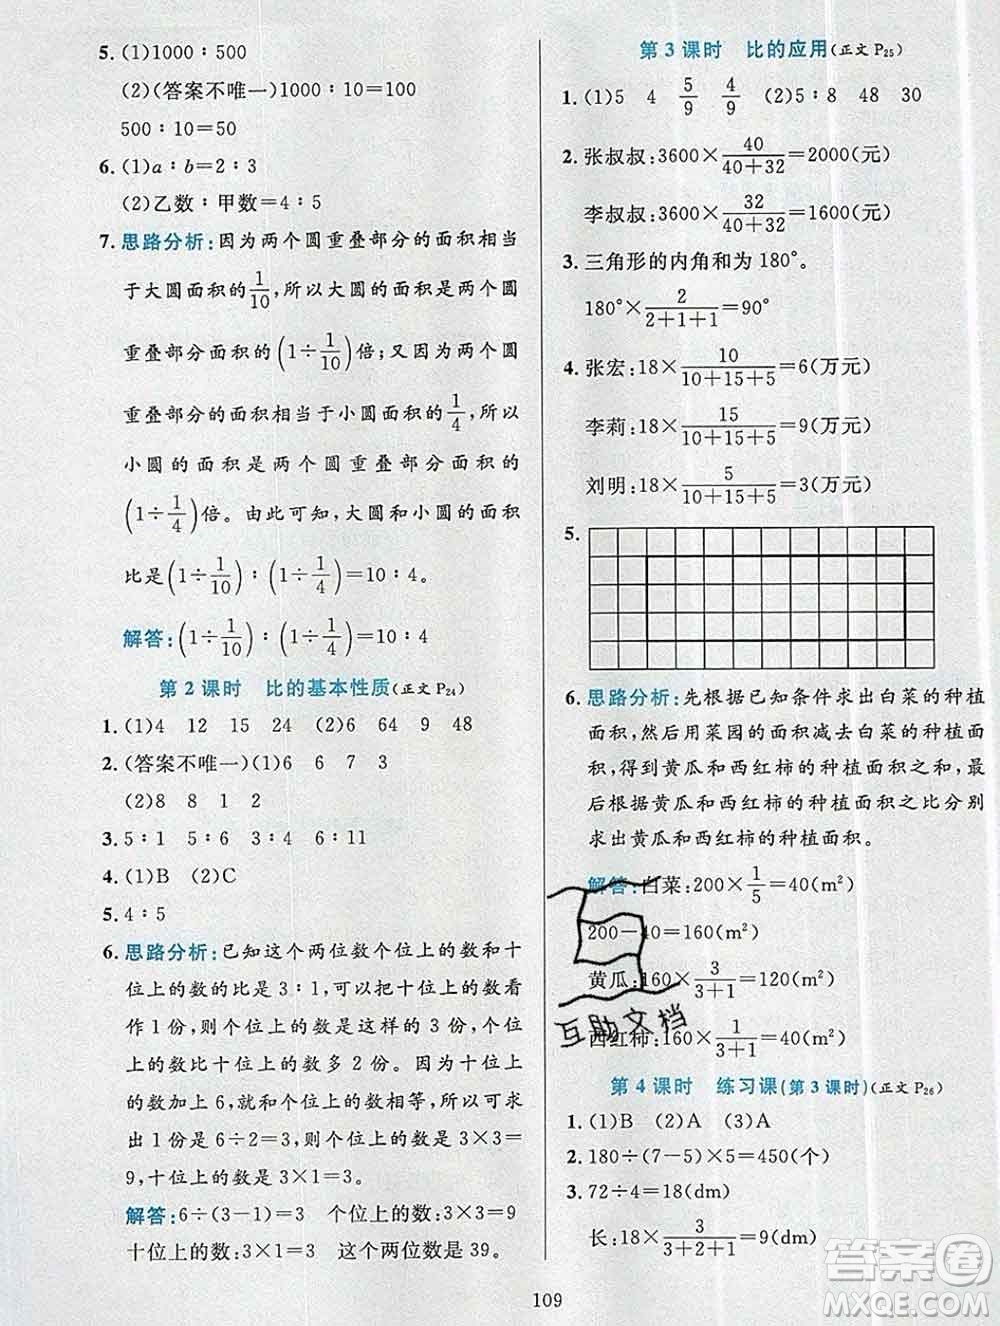 5. (1)1000∶500
(2)(答案不唯一)1000∶10=100
500∶10=50
6. (1)a∶b=2∶3
(2)乙数∶甲数=4∶5
7. 思路分析:因为两个圆重叠部分的面积相当
于大圆面积的1/10,所以大圆的面积是两个圆
重叠部分面积的(1÷1/10)倍;又因为两个圆
重叠部分的面积相当于小圆面积的1/4,所以
小圆的面积是两个圆重叠部分面积的
(1÷1/4)倍。由此可知,大圆和小圆的面积
比是(1÷1/10)∶(1÷1/4)=10∶4。
解答:(1÷1/10)∶(1÷1/4)=10∶4
第2课时 比的基本性质(正文P24)
1. (1)4 12 15 24 (2)6 64 9 48
2. (答案不唯一)(1)6 6 7 3
(2)8 8 1 2
3. 5∶1 5∶6 3∶4 6∶11
4. (1)B (2)C
5. 4∶5
6. 思路分析:已知这个两位数个位上的数和十
位上的数的比是3∶1,可以把十位上的数看
作1份,则个位上的数是这样的3份,个位上
的数比十位上的数多2份。因为十位上的
数加上6,就和个位上的数相等,所以可求
出1份是6÷2=3,则个位上的数是3×3=
9,十位上的数是3×1=3。
解答:6÷(3-1)=3 个位上的数:3×3=9
十位上的数:3×1=3 这个两位数是39。
第3课时 比的应用(正文P25)
1. (1)5 4 5/9 4/9 (2)5∶8 48 30
2. 张叔叔:3600×40/(40+32)=2000(元)
李叔叔:3600×32/(40+32)=1600(元)
3. 三角形的内角和为180°。
180°×2/(2+1+1)=90°
4. 张宏:18×10/(10+15+5)=6(万元)
李莉:18×15/(10+15+5)=9(万元)
刘明:18×5/(10+15+5)=3(万元)
5.
6. 思路分析:先根据已知条件求出白菜的种植
面积,然后用菜园的面积减去白菜的种植面
积,得到黄瓜和西红柿的种植面积之和,最
后根据黄瓜和西红柿的种植面积之比分别
求出黄瓜和西红柿的种植面积。
解答:白菜:200×1/5=40(m²)
200-40=160(m²)
黄瓜:160×3/(3+1)=120(m²)
西红柿:160×1/(3+1)=40(m²)
互助文档
第4课时 练习课(第3课时)(正文P26)
1. (1)B (2)A (3)A
2. 180÷(7-5)×5=450(个)
3. 72÷4=18(dm)
长:18×3/(3+2+1)=9(dm)
109
答案圈
MXQE.COM